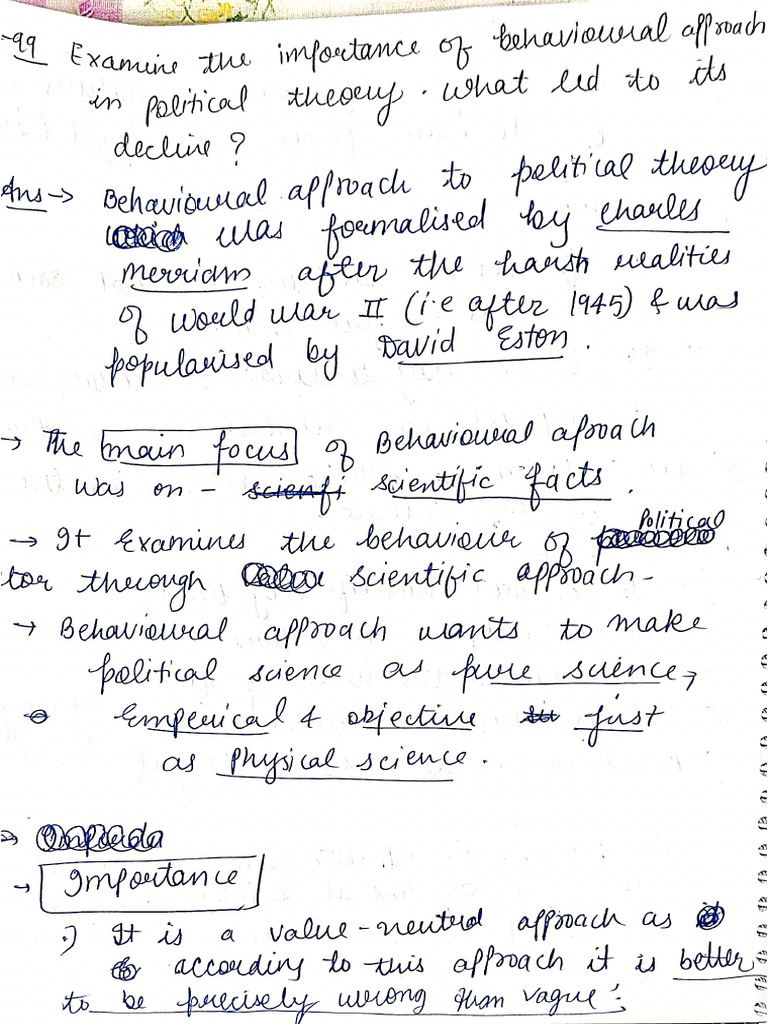 -99 Examine the importance of behavioural approach
in political theory. What led to its
decline?
Ans → Behavioural approach to political theory
was formalised by charles
merriam after the harsh realities
of world war II (i.e after 1945) & was
popularised by David Eston.
→ The main focus of Behavioural aproach
was on - scientific facts.
→ It Examines the behaviour of Political
tor through scientific approach-
→ Behavioural approach wants to make
political science as pure science,
Emperical & objective just
as Physical science.
→ Importance
.) It is a value-neutral approach as
according to this approach it is better
to be precisely wrong than vague.